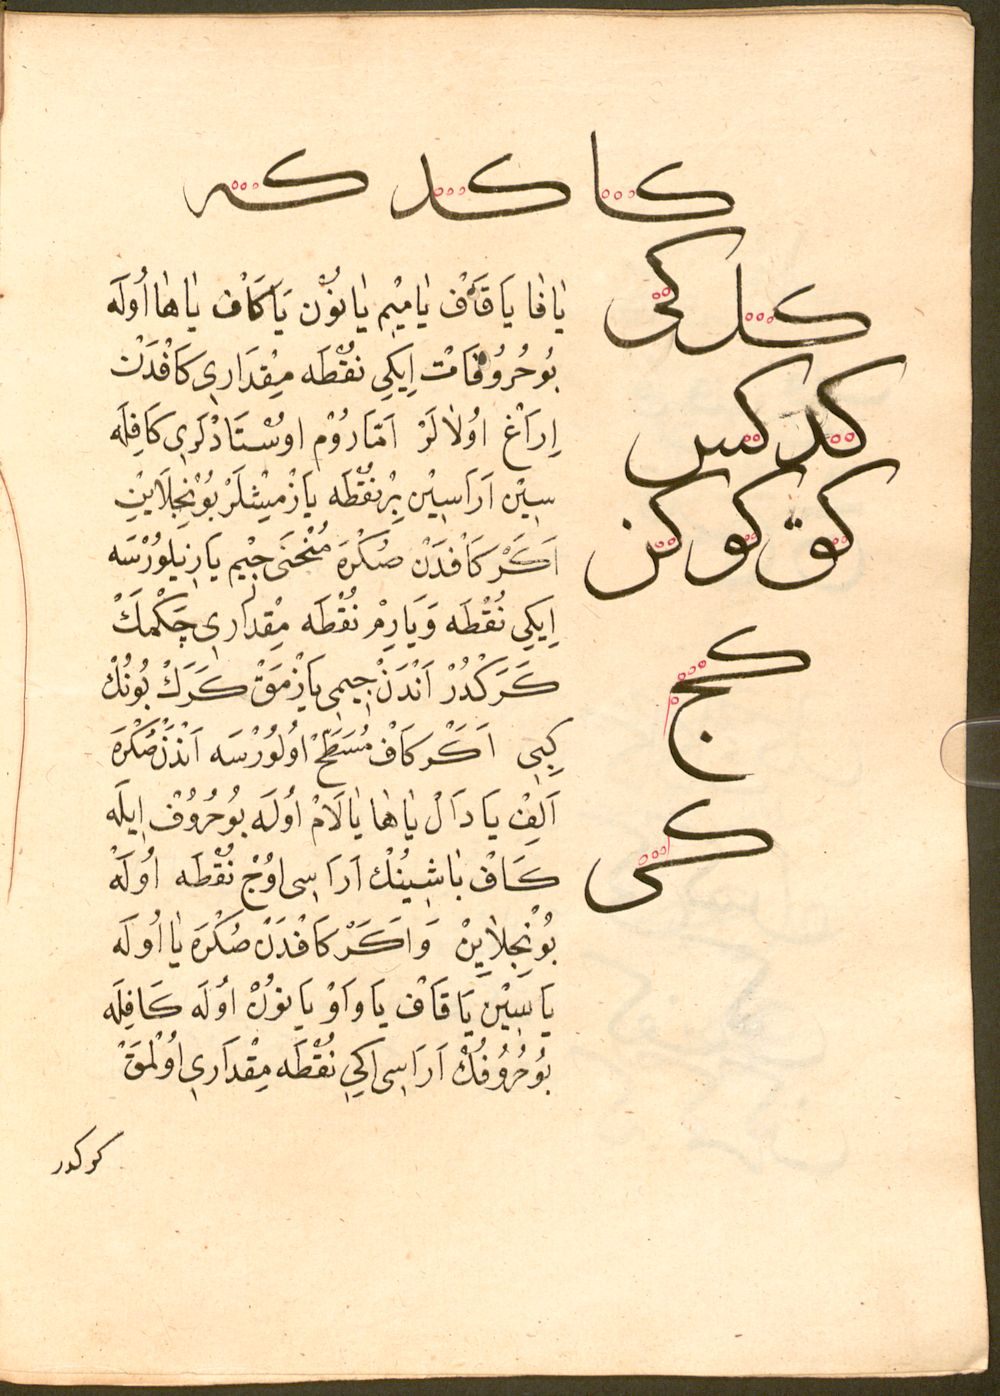 كا كد كه
كل كى
كد كس
كق كو كن
كج
كى
يَا فَا يَا قَافْ يَا مِيْم يَا نُوْن يَا كَافْ يَا هَا اُولَه
بُوحُرُوفَاتْ اِيكِي نُقْطَه مِقْدَارِي كَافْدَنْ
اِرَاغْ اُولَالَرْ اَمَّا رُوْم اوُسْتَادْلَرِي كَافِلَه
سِيْن اَرَاسِيْن بِرْ نُقْطَه يَازْمِيشْلَرْ بُوْنجِلَايِنْ
اَكَرْ كَافْدَنْ صُكْرَه مُنْحَنَى جِيْم يَازِيلُورْسَه
اِيكِي نُقْطَه وَيَارِمْ نُقْطَه مِقْدَارِي جَكْمَكْ
كَرَكْدُرْ اَنْدَنْ جِيمِي يَازْمَقْ كَرَكْ بُونُكْ
كِبِي اَكَرْ كَافْ مُسَطَّحْ اُولُورْسَه اَنْدَنْ صُكْرَه
اَلِفْ يَا دَالْ يَا هَا يَا لَامْ اُولَه بُوحُرُوفْ اِيلَه
كَافْ بَاشِينُكْ اَرَاسِى اوُجْ نُقْطَه اُولَه
بُوْنجِلَايِنْ وَاَكَرْ كَافْدَنْ صُكْرَه يَا اُولَه
يَا سِيْن يَا قَافْ يَا وَاوْ يَا نُونْ اُولَه كَافِلَه
بُوحُرُوفُكْ اَرَاسِى اِكِي نُقْطَه مِقْدَارِي اُوْلْمَقْ
كركدر